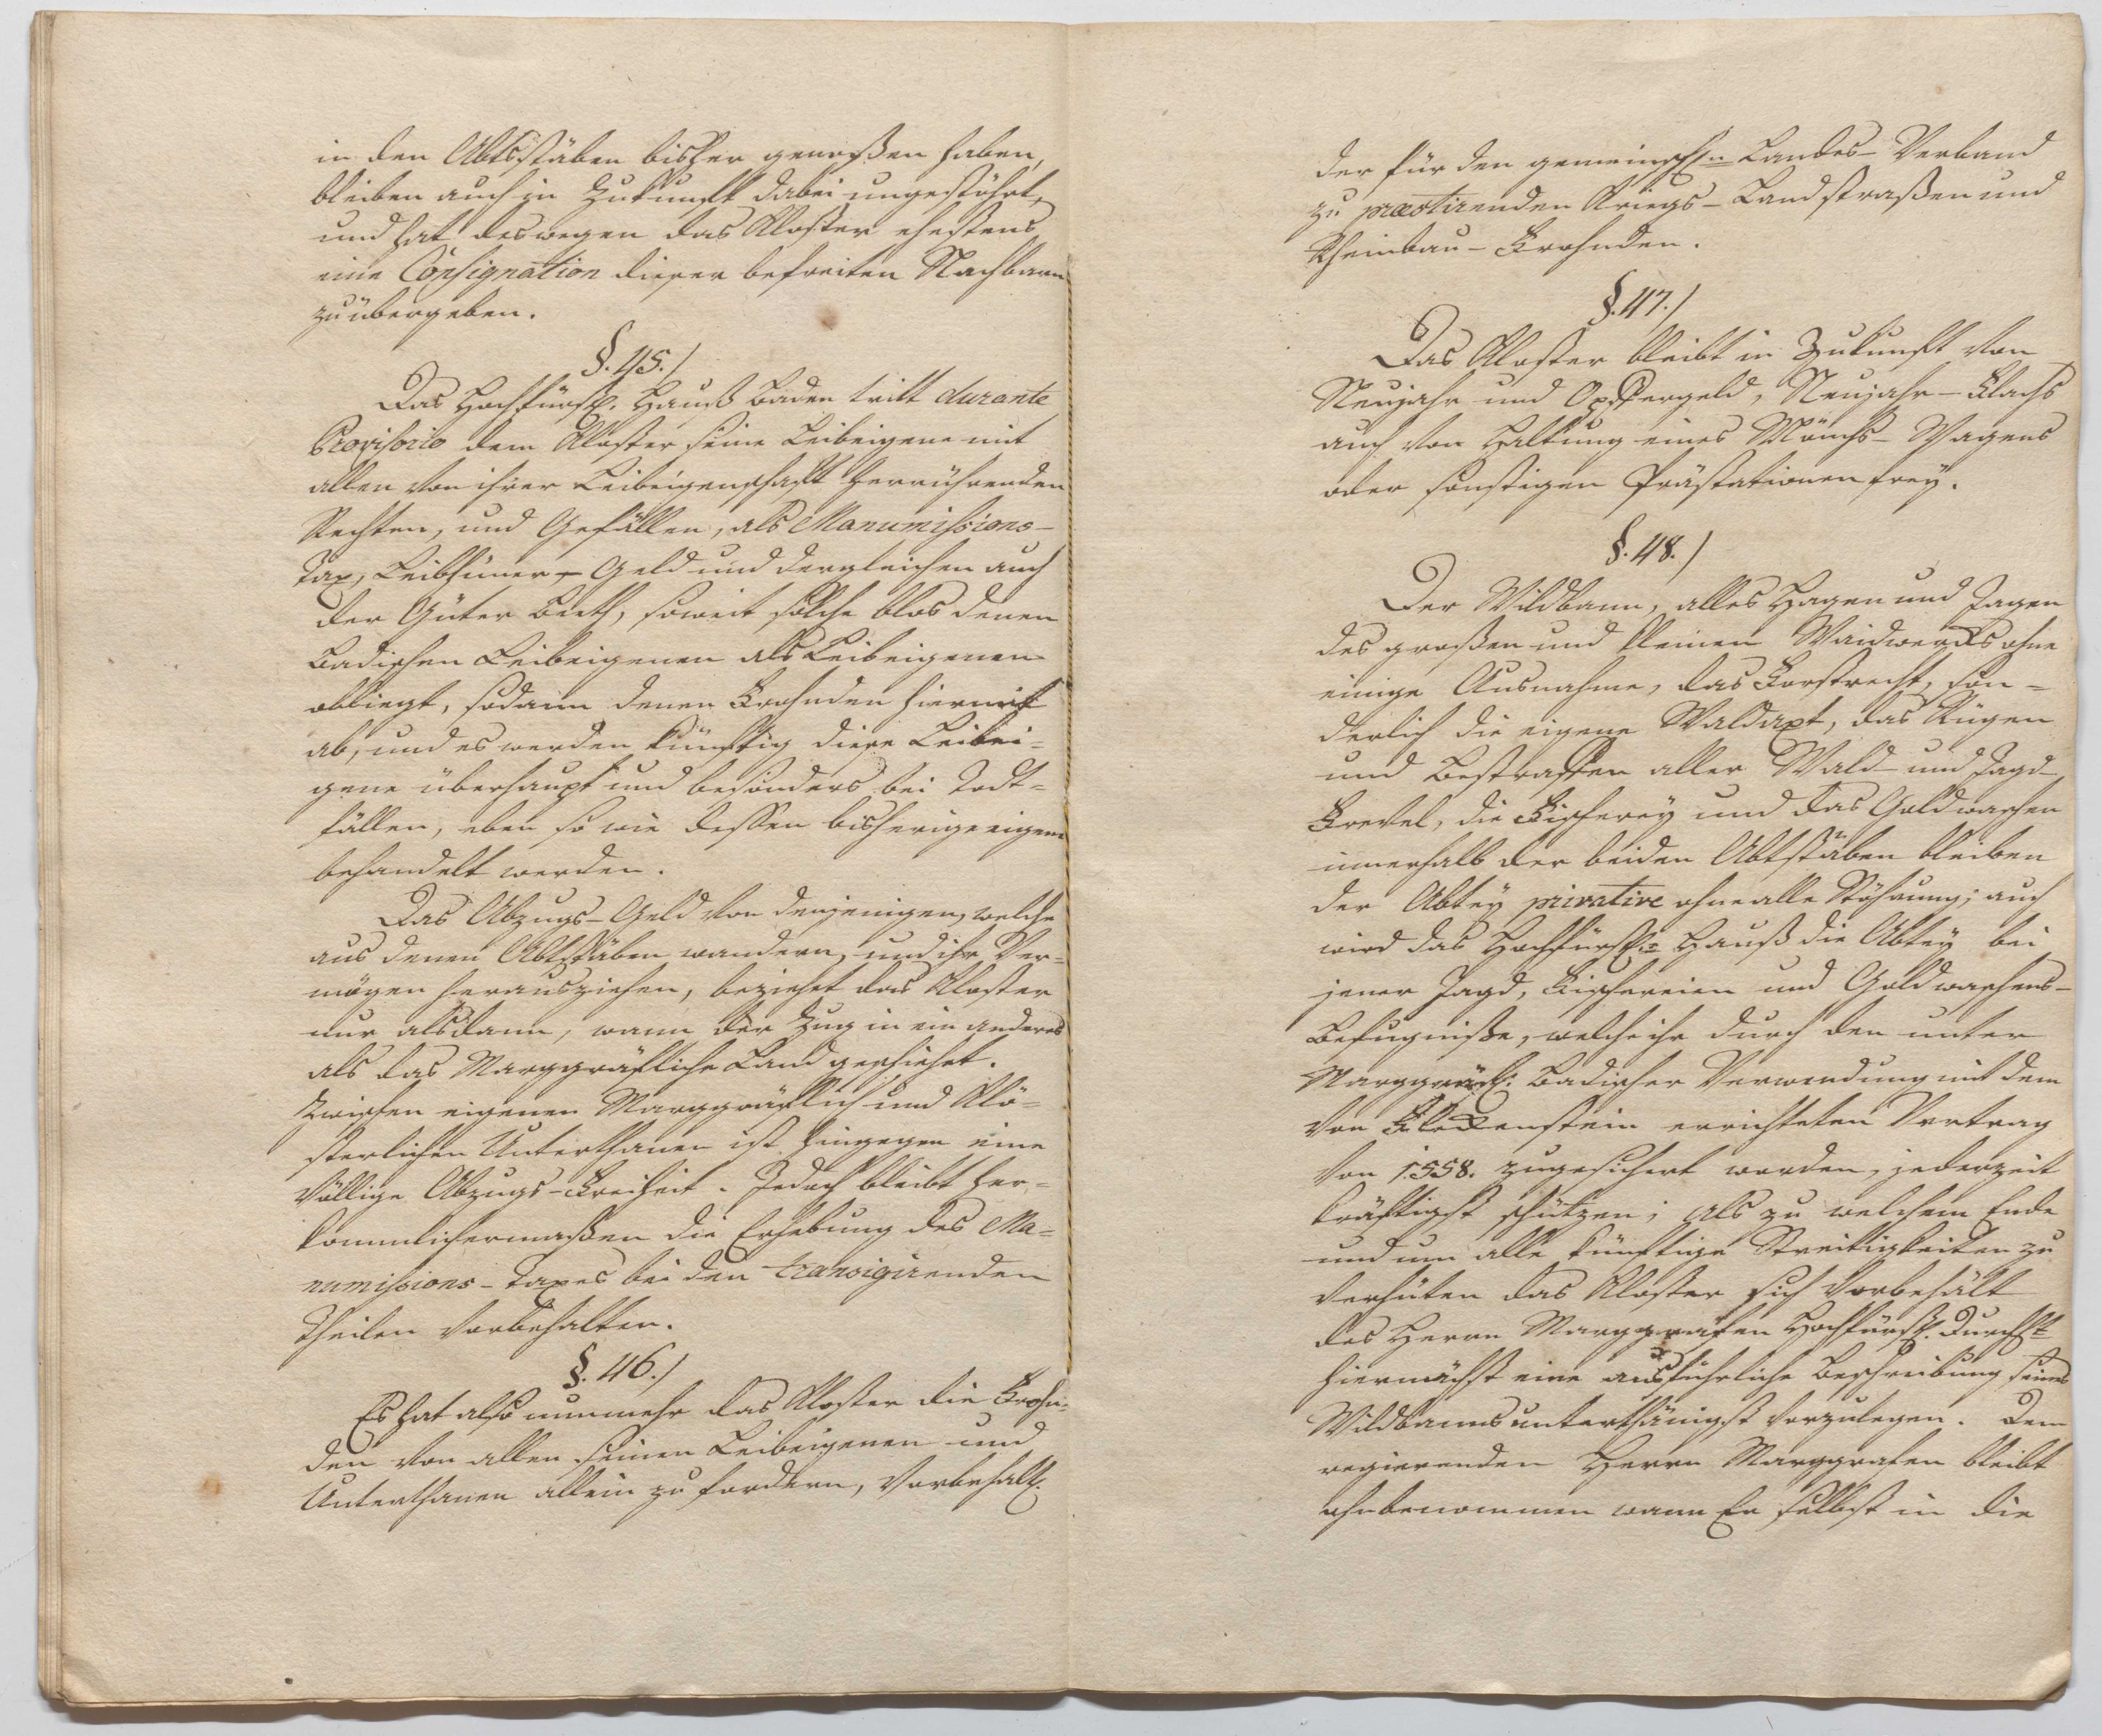 in den Abtsstäben bisher genoßen haben,
bleiben auch in Zukunft dabei ungestöhrt,
und hat deswegen das Kloster ehestens
eine Consignation dieser befreiten Nachbarn
zu übergeben.
§. 45./
Das Hochfürstl. Hauß Baden tritt durante
Provisorio dem Kloster seine Leibeigene mit
allen von ihrer Leibeigenschafft herrührenden
Rechten, und Gefällen, als Manumissions-
Tax, Leibhüner-Geld und dergleichen auch
der Güter Beeth, soweit solche blos denen
Badischen Leibeigenen als Leibeigenen
obliegt, sodann denen Frohnden hiermit
ab, und es werden künftig diese Leibei-
gene überhaupt und besonders bei Todt-
fällen, eben so wie dessen bisherige eigene
behandelt werden.
Das Abzugs-Geld von denjenigen, welche
aus denen Abtsstäben wandern, und ihr Ver-
mögen herausziehen, beziehet das Kloster
nur alsdann, wann der Zug in ein anderes
als das Marggräfliche Land geschiehet.
Zwischen eigenen Marggräflich und Klö-
sterlichen Unterthanen ist hingegen eine
völlige Abzugs-Freiheit. Jedoch bleibt her-
kommlichermaßen die Erhebung des Ma-
numissions-Taxes bei den transigirenden
Theilen vorbehalten.
§. 46./
Es hat also nunmehr das Kloster die Frohn-
den von allen seinen Leibeigenen und
Unterthanen allein zu fordern, vorbehaltl.
der für den gemeinschl.n Landes-Verband
zu præstirenden Kriegs-Landstraßen und
Rheinbau-Frohnden.
§. 47./
Das Kloster bleibt in Zukunft von
Neujahr und Opffergeld, Neujahr-Flachs
auch von Haltung eines Mönchs-Wagens
oder sonstigen Prästationen frey.
§. 48./
Der Wildbann, alles Hagen und Jagen
des großen und kleinen Waidwercks ohne
einige Ausnahme, das Forstrecht, son-
derlich die eigene Waldaxt, das Rügen
und Bestraffen aller Wald- und Jagd-
Frevel, die Fischerey und das Goldwaschen
innerhalb der beiden Abtsstäben bleiben
der Abtey privative ohne alle Stöhrung; auch
wird das Hochfürstl.e Hauß die Abtey bei
jener Jagd, Fischereien und Goldwaschens-
Befugnisse, welche ihr durch den unter
Marggräfl. Badischer Verwendung mit dem
von Fleckenstein errichteten Vertrag
von 1558. zugesichert worden, jederzeit
kräftigst schützen; als zu welchem Ende
und um alle künftige Streitigkeiten zu
verhüten das Kloster sich vorbehält
des Herrn Marggrafen Hochfürstl. Durchl.t
hiernächst eine ausführliche Beschreibung seines
Wildbanns unterthänigst vorzulegen. Dem
regierenden Herrn Marggrafen bleibt
ohnbenommen wann Er selbst in die